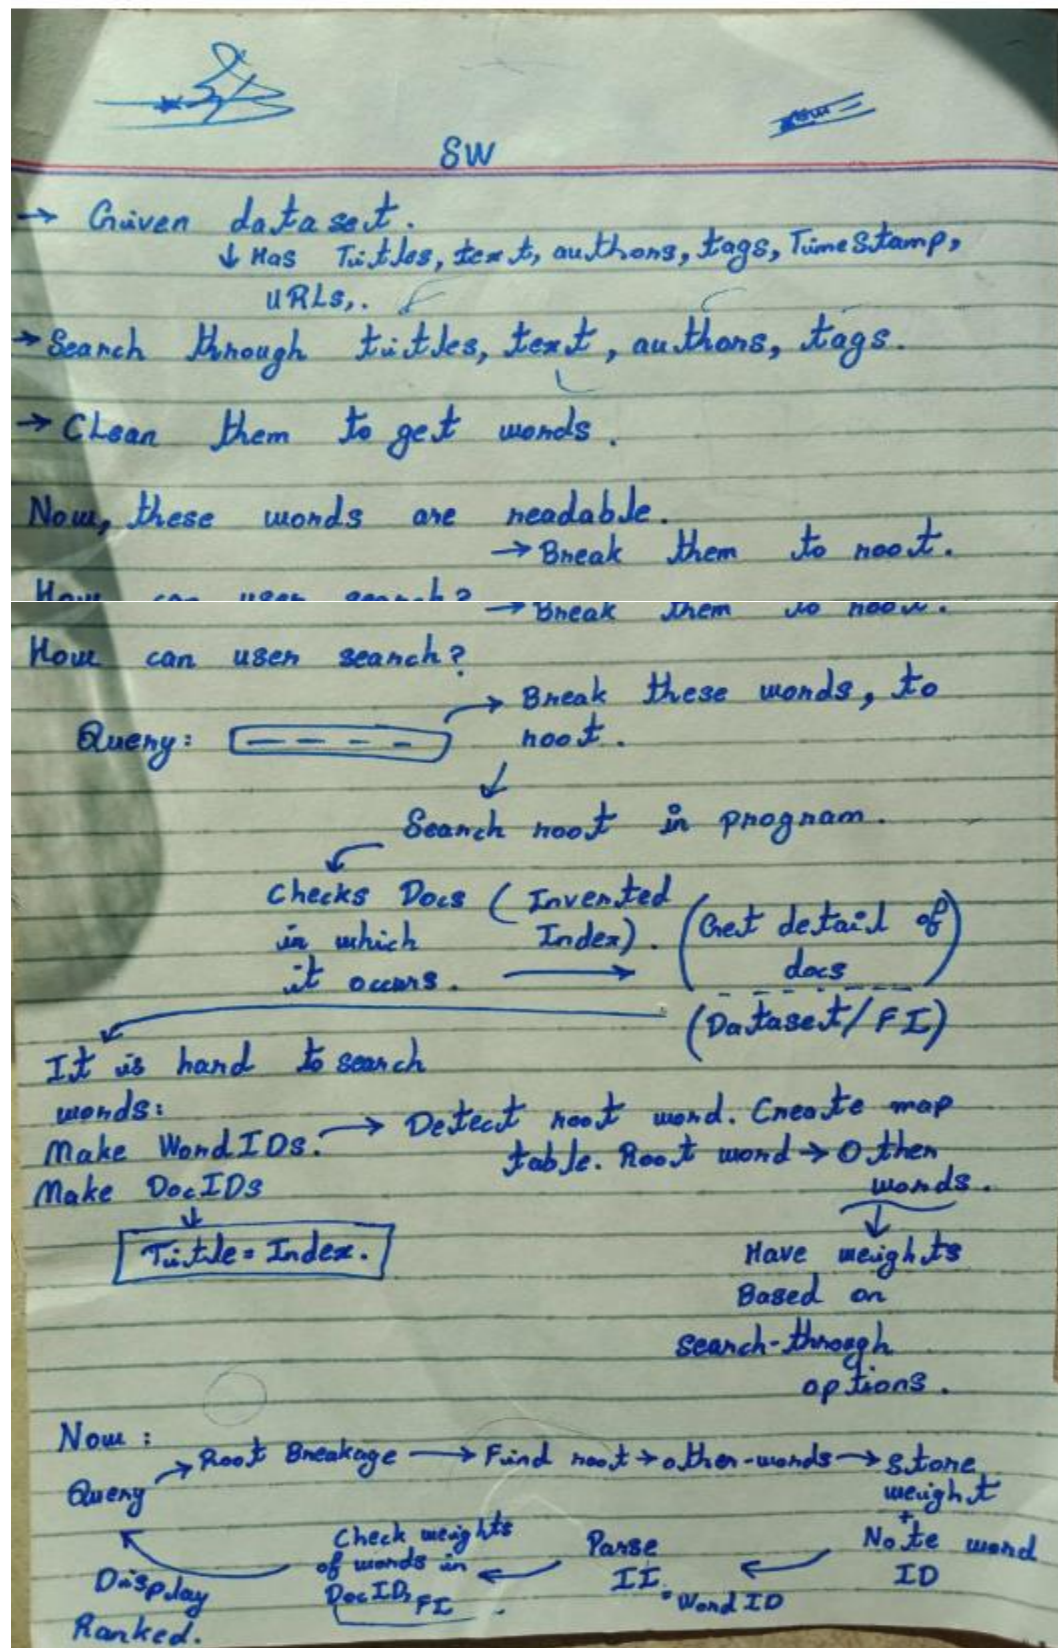 SW
→ Given dataset.
↓ Has Titles, text, authors, tags, TimeStamp,
URLs,.
→ Search through titles, text, authors, tags.
→ Clean them to get words.
Now, these words are readable.
→ Break them to root.
How can user search?
→ Break them to root.
How can user search?
→ Break these words, to
Query: root.
↓
Search root in program.
Checks Docs (Inverted
in which Index).
it occurs. → (Get detail of
docs
(Dataset/FI)
It is hard to search
words:
Make WordIDs. → Detect root word. Create map
table. Root word → Other
words.
Make DocIDs
↓
Title = Index.
↓
Have weights
Based on
search-through
options.
Now:
Query → Root Breakage → Find root → other-words → store
weight
+
Note word
ID
Parse
II.
= Word ID
Check weights
of words in
DocID, FI
Display
Ranked.